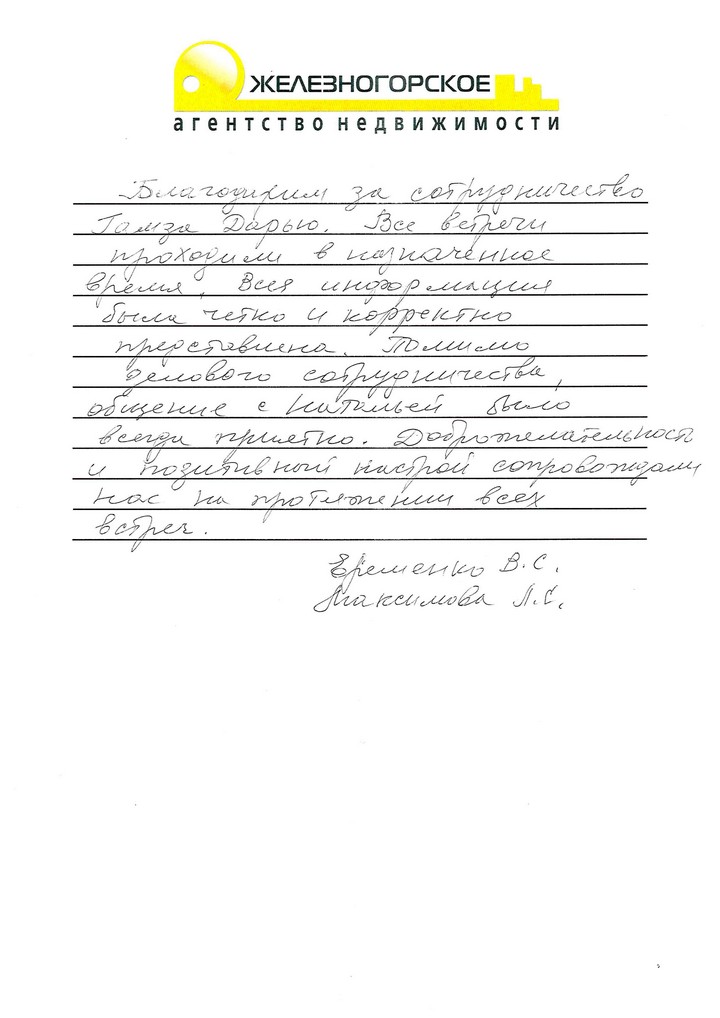 ЖЕЛЕЗНОГОРСКОЕ
агентство недвижимости
Благодарим за сотрудничество
Гамза Дарью. Все встречи
проходили в назначенное
время. Вся информация
была четко и корректно
представлена. Помимо
делового сотрудничества,
общение с Натальей было
всегда приятно. Доброжелательность
и позитивный настрой сопровождали
нас на протяжении всех
встреч.
Еременко В.С.
Максимова Л.С.